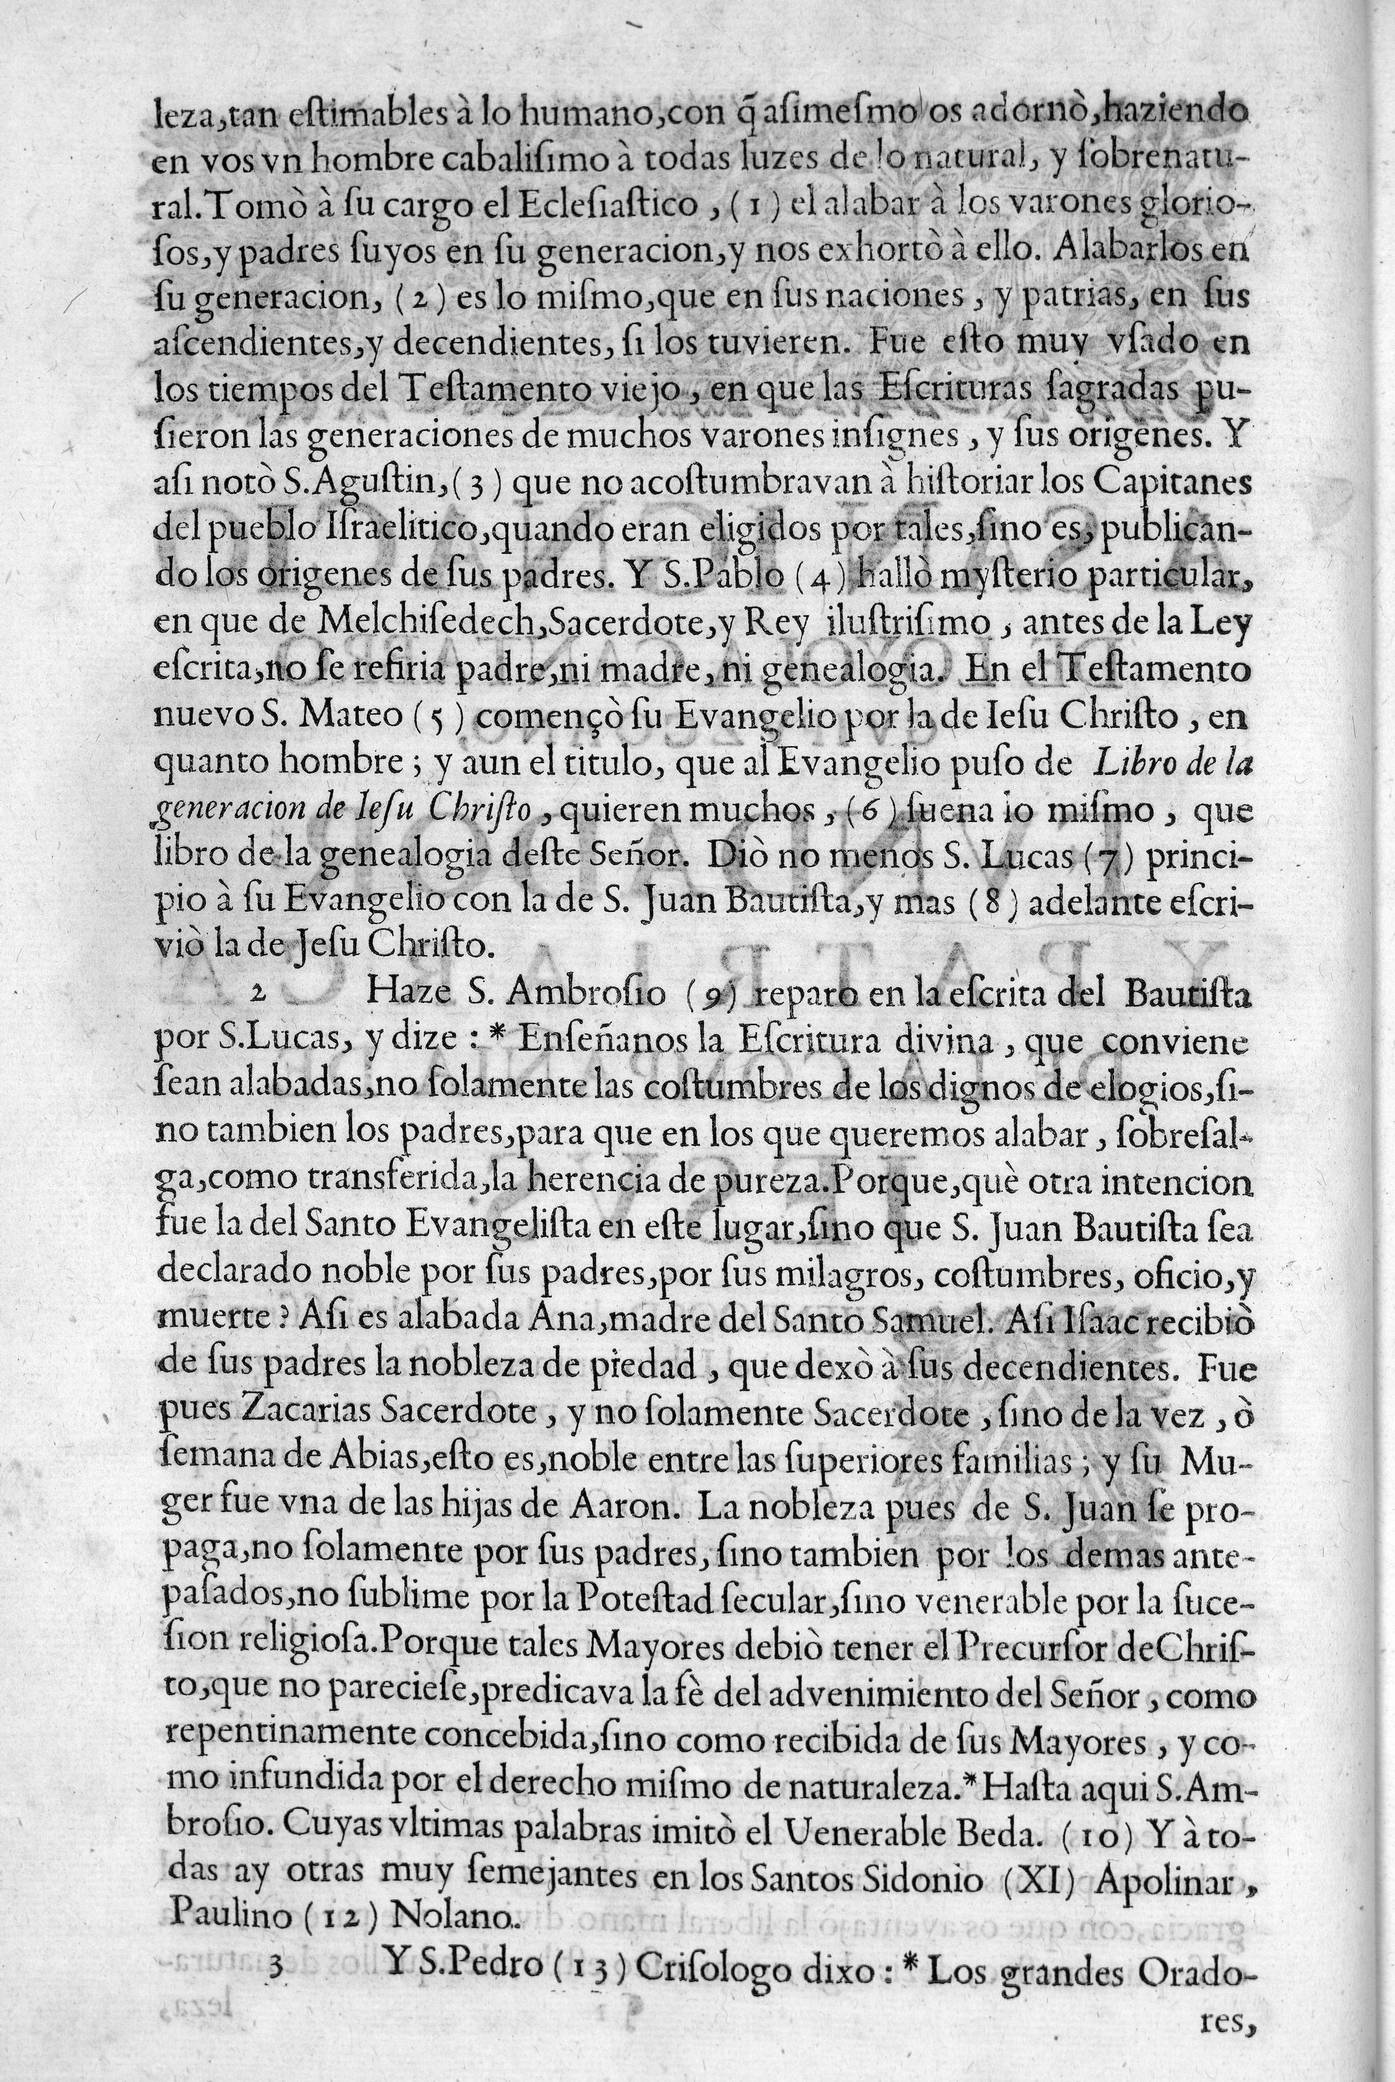 leza,tan eſtimables à lo humano,con q̃ aſimeſmo os adornò,haziendo
en vos vn hombre cabaliſimo à todas luzes de lo natural, y ſobrenatu-
ral.Tomò à ſu cargo el Ecleſiaſtico , (1) el alabar à los varones glorio-
ſos,y padres ſuyos en ſu generacion,y nos exhortò à ello. Alabarlos en
ſu generacion, (2) es lo miſmo,que en ſus naciones , y patrias, en ſus
aſcendientes,y decendientes, ſi los tuvieren. Fue eſto muy vſado en
los tiempos del Teſtamento viejo , en que las Eſcrituras ſagradas pu-
ſieron las generaciones de muchos varones inſignes , y ſus origenes. Y
aſi notò S.Aguſtin,(3) que no acoſtumbravan à hiſtoriar los Capitanes
del pueblo Iſraelitico,quando eran eligidos por tales,ſino es, publican-
do los origenes de ſus padres. Y S.Pablo (4) hallò myſterio particular,
en que de Melchiſedech,Sacerdote,y Rey iluſtriſimo , antes de la Ley
eſcrita,no ſe refiria padre,ni madre, ni genealogia. En el Teſtamento
nuevo S. Mateo (5) començò ſu Evangelio por la de Ieſu Chriſto , en
quanto hombre ; y aun el titulo, que al Evangelio puſo de Libro de la
generacion de Ieſu Chriſto , quieren muchos , (6) ſuena lo miſmo , que
libro de la genealogia deſte Señor. Diò no menos S. Lucas (7) princi-
pio à ſu Evangelio con la de S. Juan Bautiſta,y mas (8) adelante eſcri-
viò la de Jeſu Chriſto.
2 Haze S. Ambroſio (9) reparo en la eſcrita del Bautiſta
por S.Lucas, y dize : * Enſeñanos la Eſcritura divina , que conviene
ſean alabadas,no ſolamente las coſtumbres de los dignos de elogios,ſi-
no tambien los padres,para que en los que queremos alabar , ſobreſal-
ga,como transferida,la herencia de pureza.Porque,què otra intencion
fue la del Santo Evangeliſta en eſte lugar,ſino que S. Juan Bautiſta ſea
declarado noble por ſus padres,por ſus milagros, coſtumbres, oficio,y
muerte ? Aſi es alabada Ana,madre del Santo Samuel. Aſi Iſaac recibiò
de ſus padres la nobleza de piedad , que dexò à ſus decendientes. Fue
pues Zacarias Sacerdote , y no ſolamente Sacerdote , ſino de la vez , ò
ſemana de Abias,eſto es,noble entre las ſuperiores familias ; y ſu Mu-
ger fue vna de las hijas de Aaron. La nobleza pues de S. Juan ſe pro-
paga,no ſolamente por ſus padres, ſino tambien por los demas ante-
paſados,no ſublime por la Poteſtad ſecular,ſino venerable por la ſuce-
ſion religioſa.Porque tales Mayores debiò tener el Precurſor de Chriſ-
to,que no parecieſe,predicava la fè del advenimiento del Señor , como
repentinamente concebida,ſino como recibida de ſus Mayores , y co-
mo infundida por el derecho miſmo de naturaleza.*Haſta aqui S.Am-
broſio. Cuyas vltimas palabras imitò el Uenerable Beda. (10) Y à to-
das ay otras muy ſemejantes en los Santos Sidonio (XI) Apolinar ,
Paulino (12) Nolano.
3 Y S.Pedro (13) Criſologo dixo : * Los grandes Orado-
res,